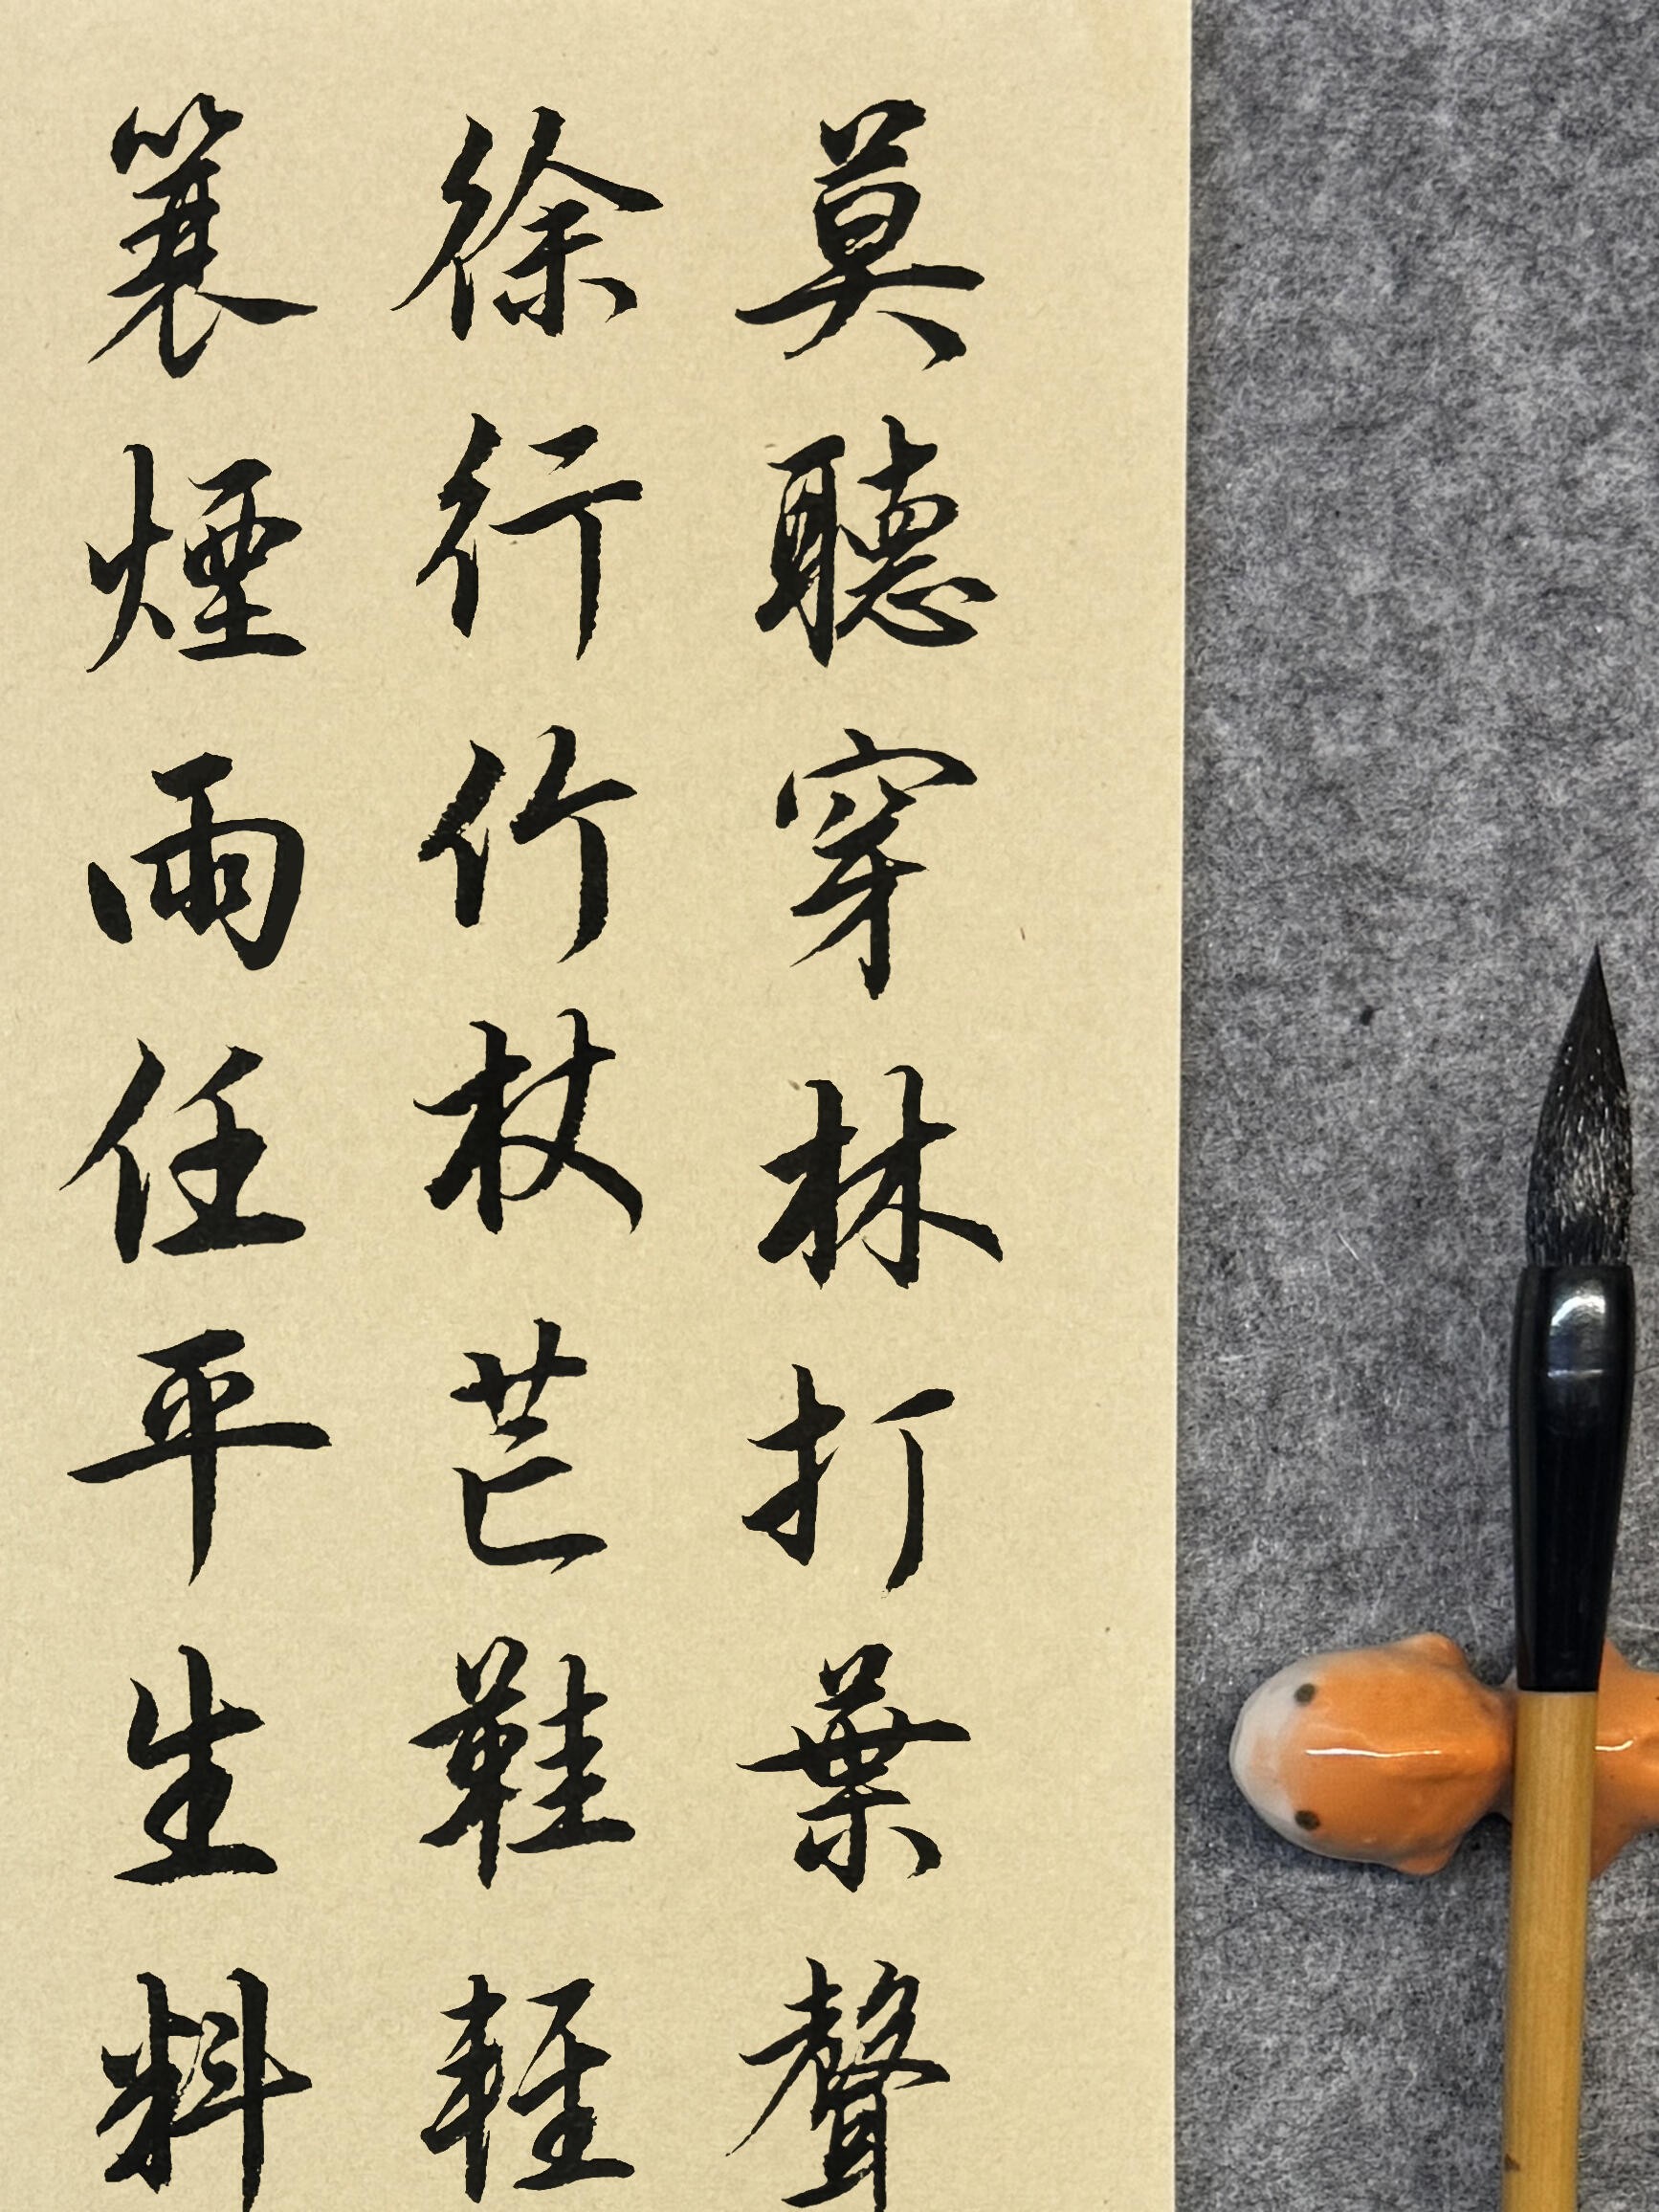 莫聽穿林打葉聲
徐行竹杖芒鞋輕
簑煙雨任平生料